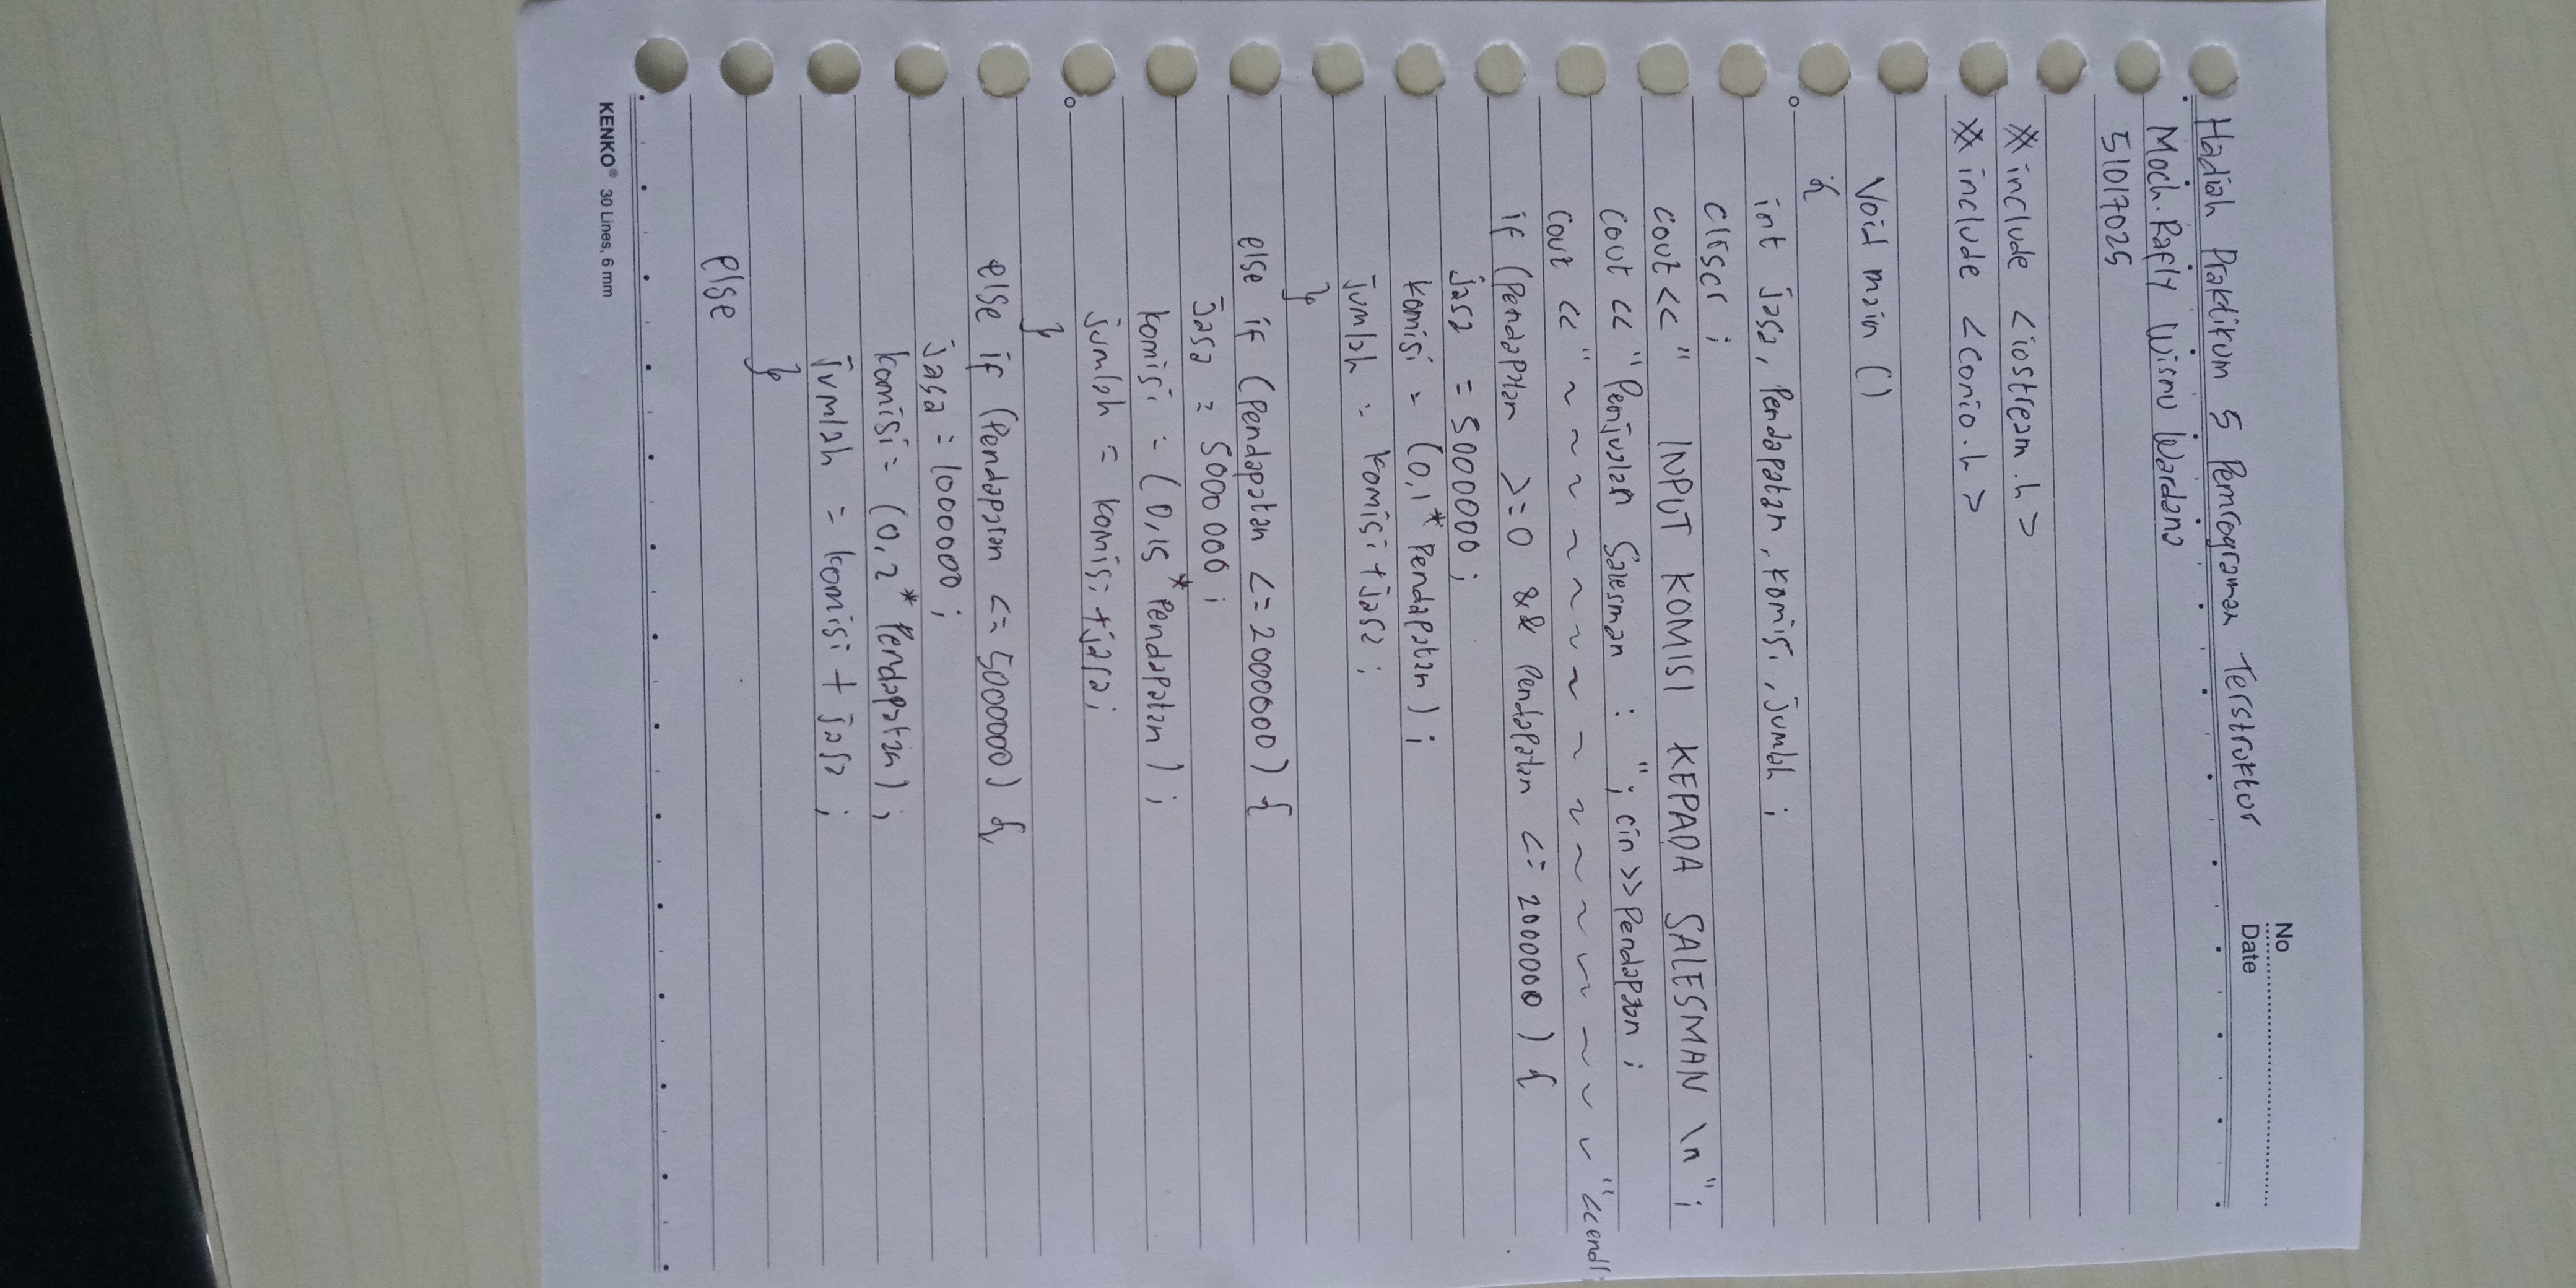 No
Date
Hadiah Praktikum 5 Pemrograman Terstruktur
Moch. Rafly Wisnu Wardana
51017025
#include <iostream.h>
#include <conio.h>
Void main ()
{
int jasa, Pendapatan, komisi, jumlah ;
clrscr ;
cout << " INPUT KOMISI KEPADA SALESMAN \n" ;
cout << "Penjualan Salesman : "; cin >> Pendapatan ;
cout << "~ ~ ~ ~ ~ ~ ~ ~ ~ ~ ~ ~ ~ ~ ~" << endl;
if (Pendapatan >= 0 && Pendapatan <= 2000000) {
jasa = 5000000 ;
komisi = (0,1 * Pendapatan) ;
jumlah = komisi + jasa ;
}
else if (Pendapatan <= 2000000) {
jasa = 5000 000 ;
komisi = (0,15 * Pendapatan) ;
jumlah = komisi + jasa ;
}
else if (Pendapatan <= 5000000) {
jasa = 1000000 ;
komisi = (0,2 * Pendapatan) ;
jumlah = komisi + jasa ;
}
else
KENKO® 30 Lines, 6 mm